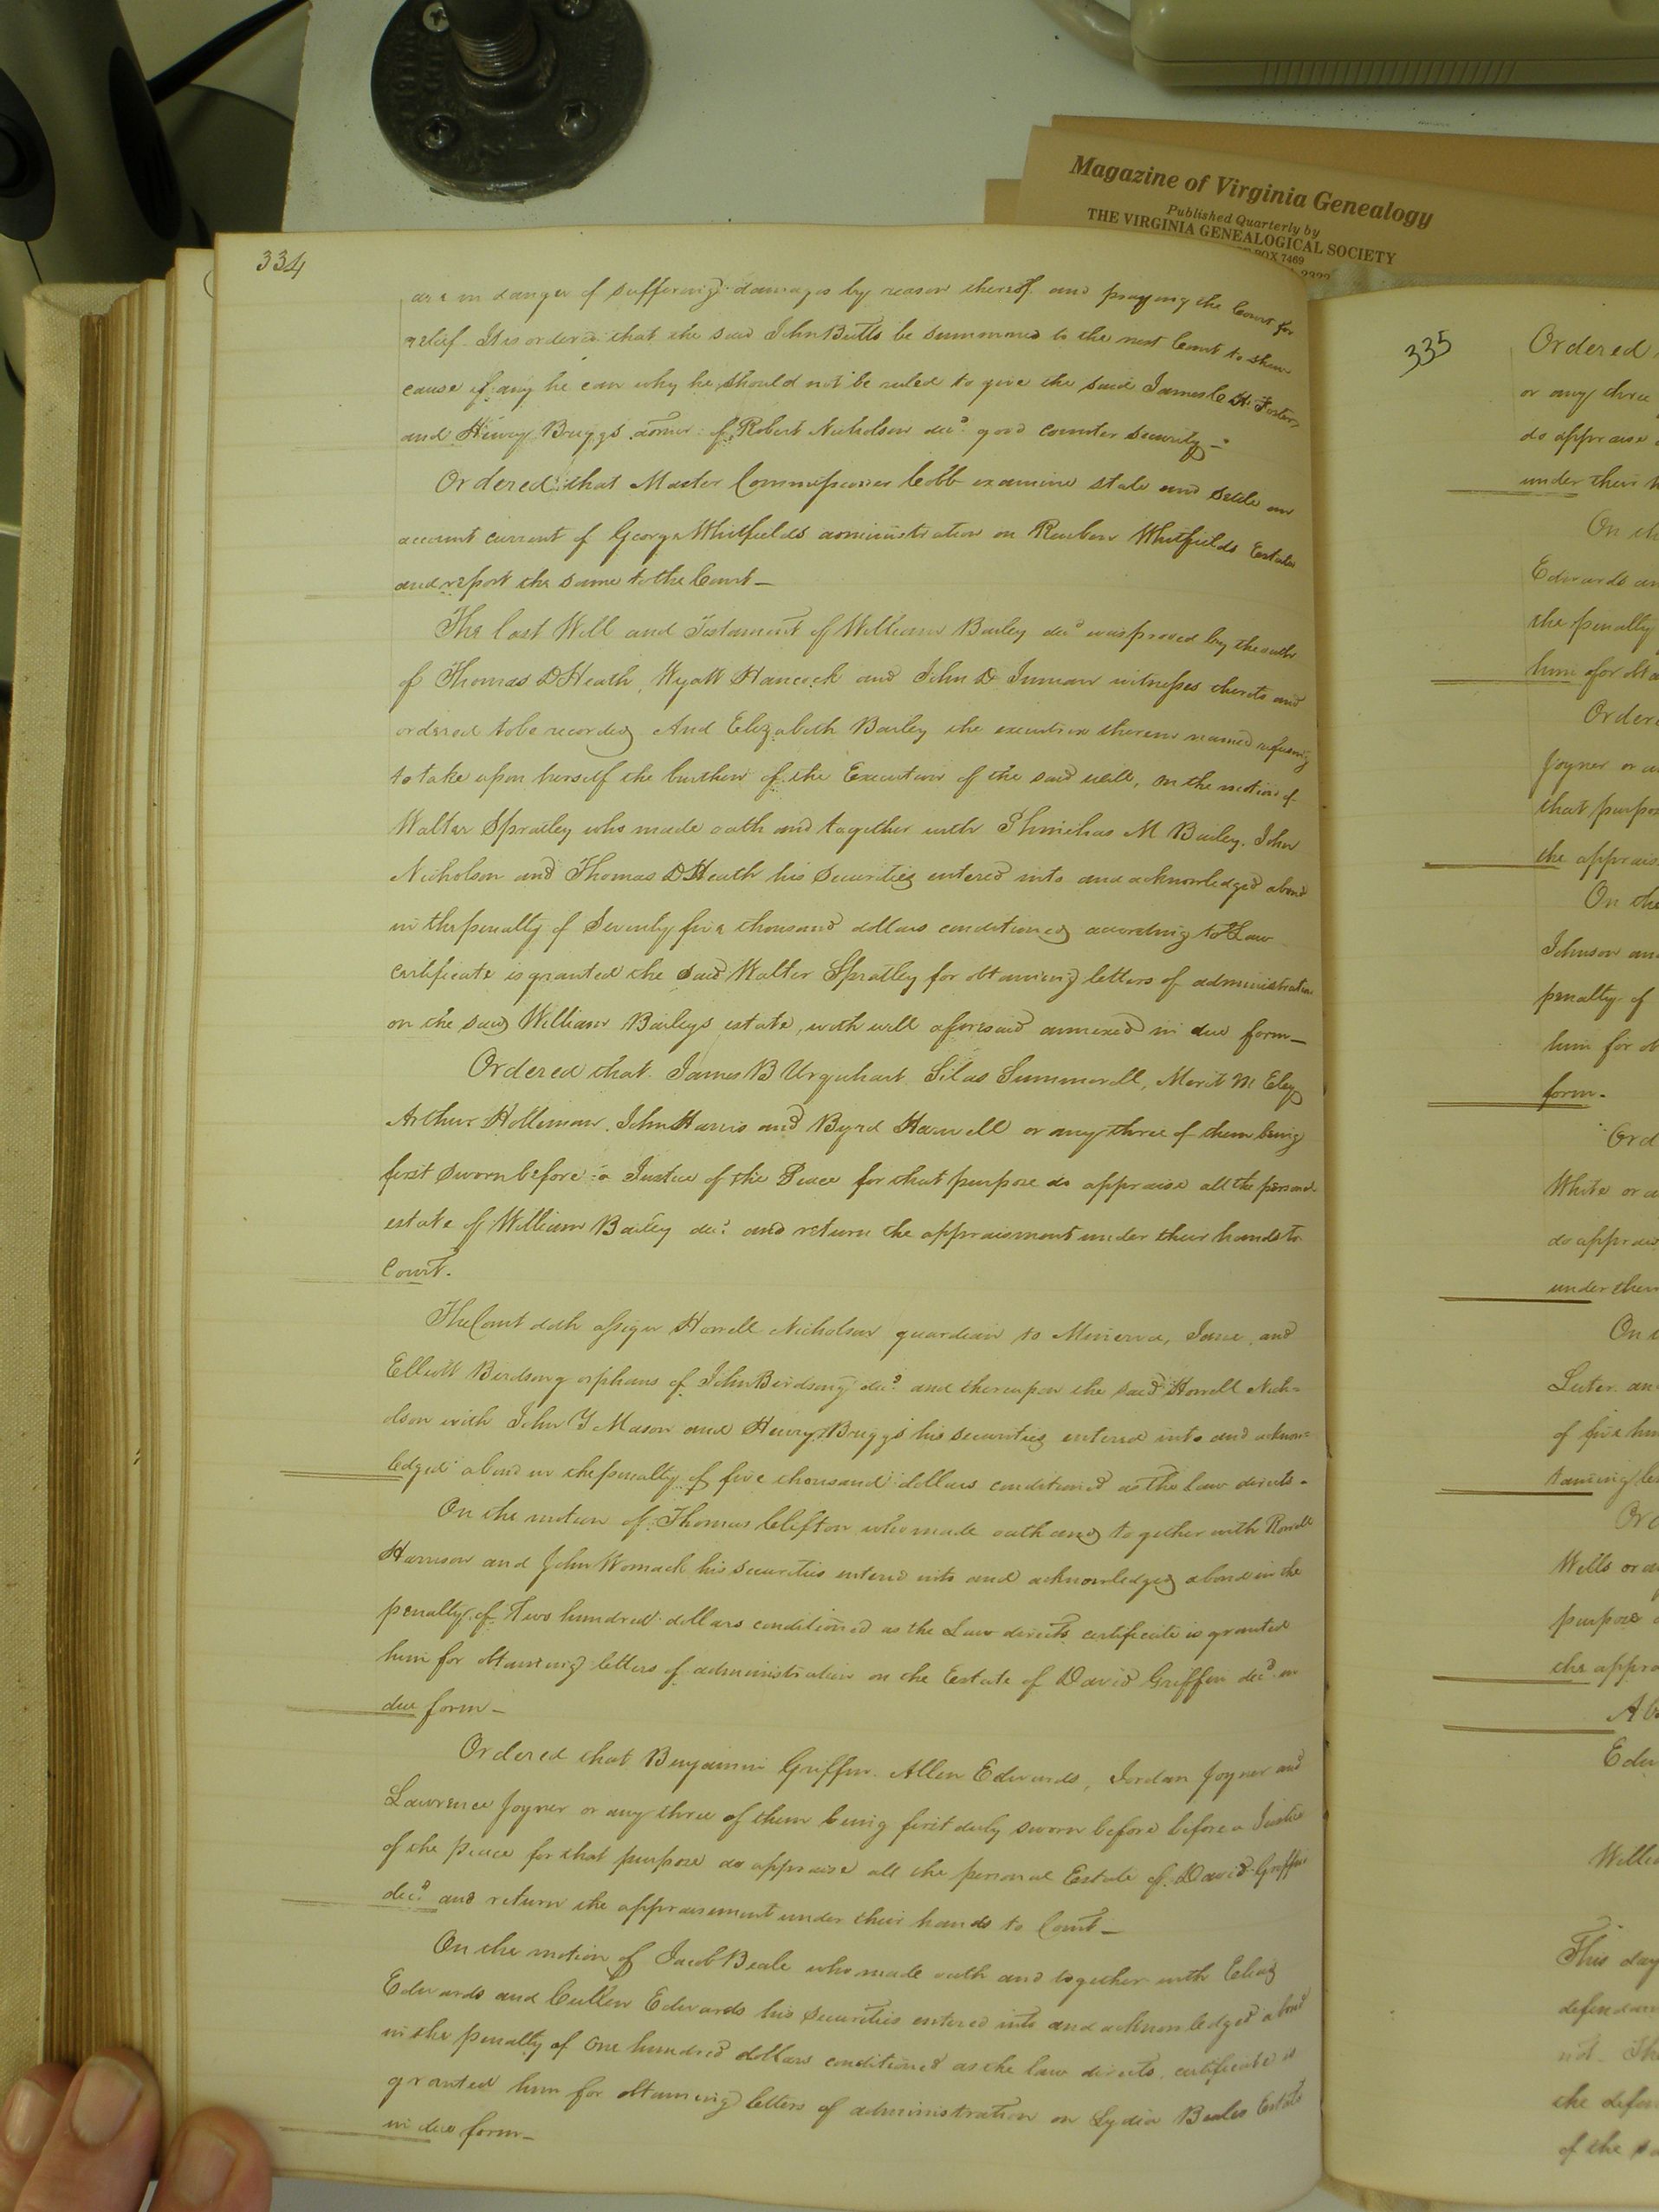 Magazine of Virginia Genealogy
Published Quarterly by
THE VIRGINIA GENEALOGICAL SOCIETY
BOX 7469
334
are in danger of suffering damages by reason thereof and praying the Court for
relief. It is ordered that the said John Butts be summoned to the next Court to shew
cause if any he can why he should not be ruled to give the said James C H
and Henry Briggs admr. of Robert Nicholson decd. good counter security -
Ordered that Master Commissioner Cobb examine state and settle an
account current of George Whitfields administration on Reuben Whitfields Estate
and report the same to the Court -
The last Will and Testament of William Bailey decd was proved by the oaths
of Thomas D Heath, Wyatt Hancock and John D Inman witnesses thereto and
ordered to be recorded And Elizabeth Bailey the executrix therein named refusing
to take upon herself the burthen of the Execution of the said will, on the motion of
Walter Spratley who made oath and together with Phinehas M Bailey, John
Nicholson and Thomas D Heath his Securities entered into and acknowledged a bond
in the penalty of Seventy five thousand dollars conditioned according to Law
certificate is granted the said Walter Spratley for obtaining letters of administration
on the said William Baileys estate, with will aforesaid annexed in due form -
Ordered that James B Urquhart, Silas Summerell, Merit M Eley
Arthur Holleman, John Harris and Byrd Harwell or any three of them being
first sworn before a Justice of the Peace for that purpose do appraise all the personal
estate of William Bailey decd. and return the appraisment under their hands to
Court.
The Court doth assign Howell Nicholson guardian to Minerva, Jane, and
Elliott Birdsong orphans of John Birdsong decd. and thereupon the said Howell Nich=
olson with John Y Mason and Henry Briggs his securities entered into and acknow=
ledged a bond in the penalty of five thousand dollars conditioned as the Law directs -
On the motion of Thomas Clifton who made oath and together with
Harrison and John Womack his securities entered into and acknowledged a bond in the
penalty of Two hundred dollars conditioned as the Law directs certificate is granted
him for obtaining letters of administration on the Estate of David Griffin decd. in
due form -
Ordered that Benjamin Griffin, Allen Edwards, Jordan Joyner and
Lawrence Joyner or any three of them being first duly sworn before before a Justice
of the peace for that purpose do appraise all the personal Estate of David Griffin
decd. and return the appraisement under their hands to Court -
On the motion of Jacob Beale who made oath and together with Elias
Edwards and Cullen Edwards his securities entered into and acknowledged a bond
in the penalty of One hundred dollars conditioned as the law directs, certificate is
granted him for obtaining letters of administration on Lydia Beales Estate
in due form -
335
Ordered
or any three
do appraise
under their
On th
Edwards an
the penalty
him for obta
Order
Joyner or a
that purpos
the apprais
On the
Johnson an
penalty of
him for ob
form.
Ord
White or a
do apprais
under their
On
Luter an
of five hun
taining le
Or
Wells or a
purpose
the appra
Ab
Edw
Willi
This day
defendan
not. The
the defen
of the